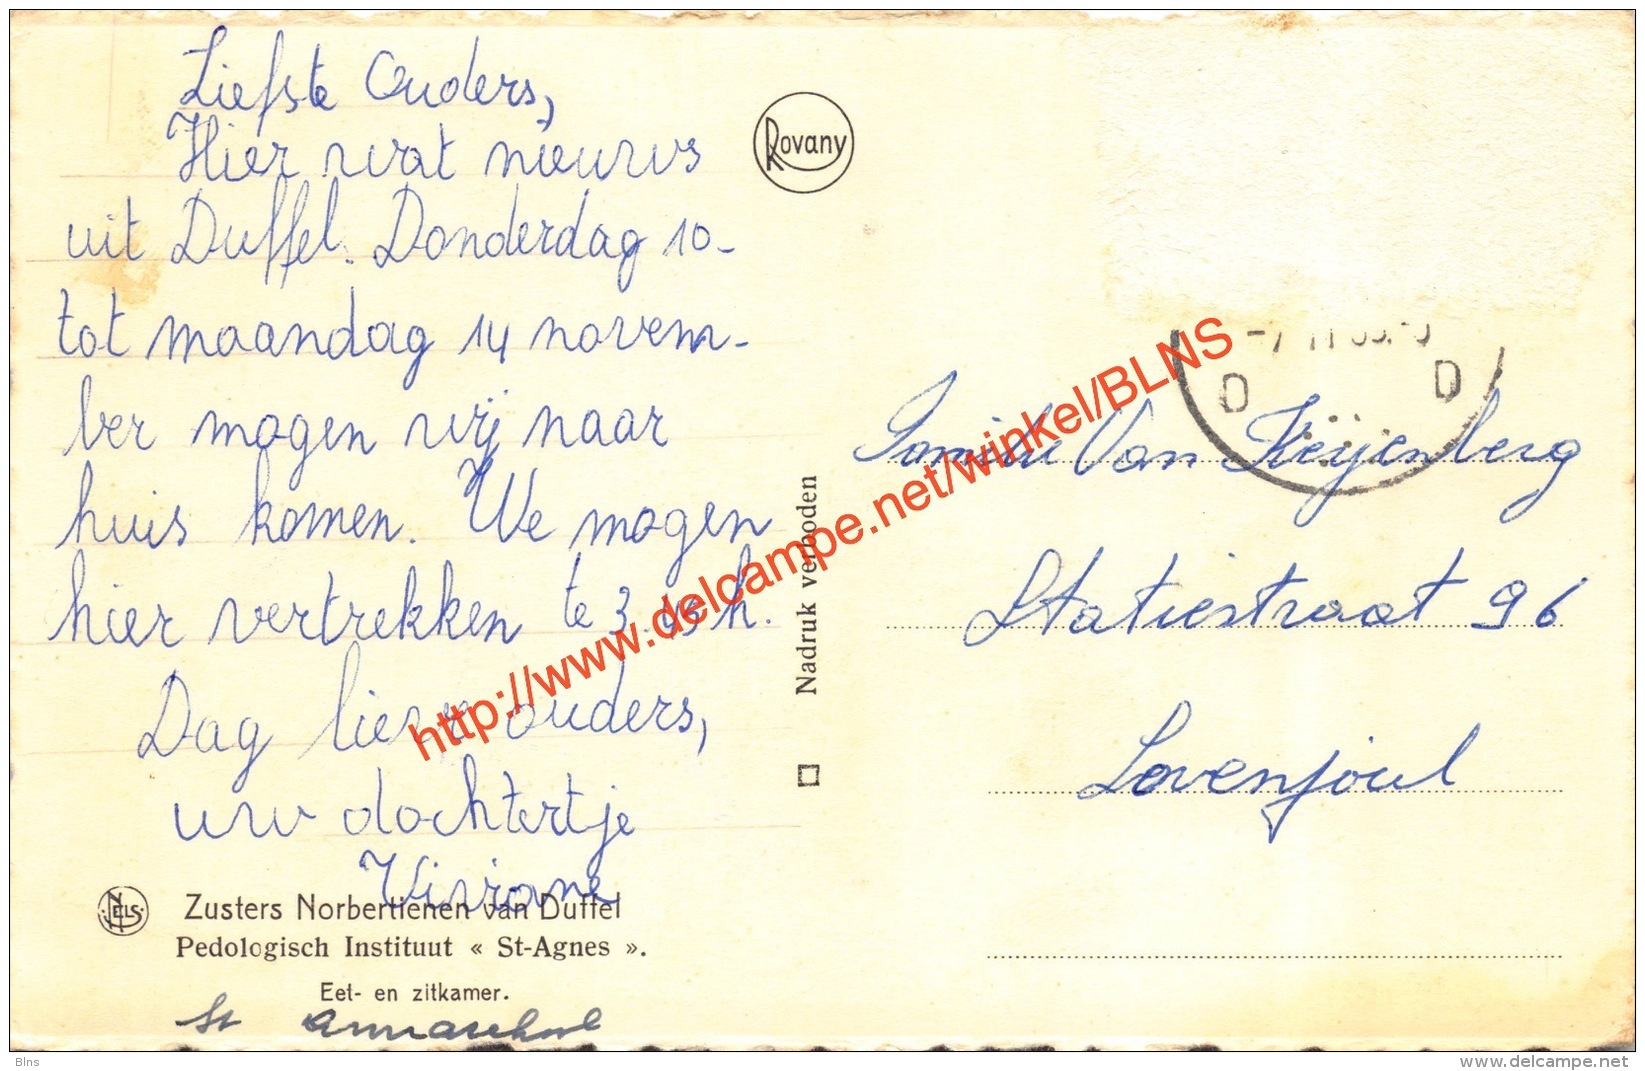 Liefste Ouders,
Hier wat nieuws
uit Duffel. Donderdag 10-
tot maandag 14 novem-
ber mogen wij naar
huis komen. We mogen
hier vertrekken te 3.45 h.
Dag lieve ouders,
uw dochtertje
Viviane
NELS
Zusters Norbertienen van Duffel
Pedologisch Instituut « St-Agnes ».
Eet- en zitkamer.
St Annaschool
Rovany
Nadruk verboden
D D
Familie Van Keijenberg
Statiestraat 96
Lovenjoul
http://www.delcampe.net/winkel/BLNS
Blns
www.delcampe.net